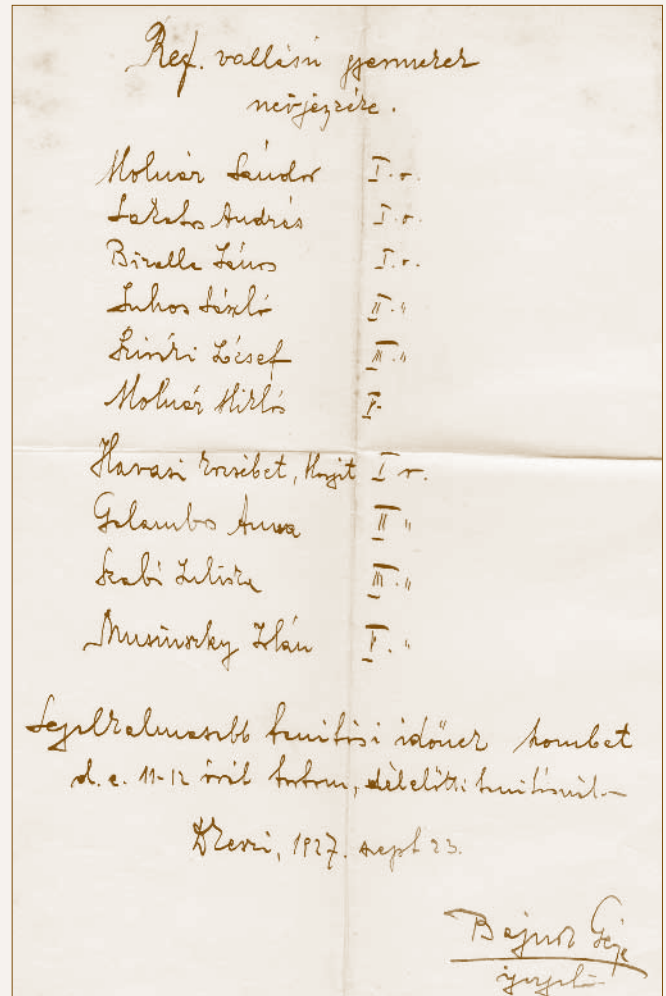 Ref. vallású gyermekek
névjegyzéke.
Molnár Sándor I. o.
Lakatos András I. o.
Bizella János I. o.
Juhos László II. "
Szűszi József III. "
Molnár Miklós V.
Havasi Erzsébet, Margit I o.
Galambos Anna II "
Szabó Juliska III. "
Musinszky Iván V. "
Legalkalmasabb tanítási időnek szombat
d. e. 11-12 óráig tartom, délelőtti tanításnál.
1927. sept 23.
Bajusz Géza
igazgató